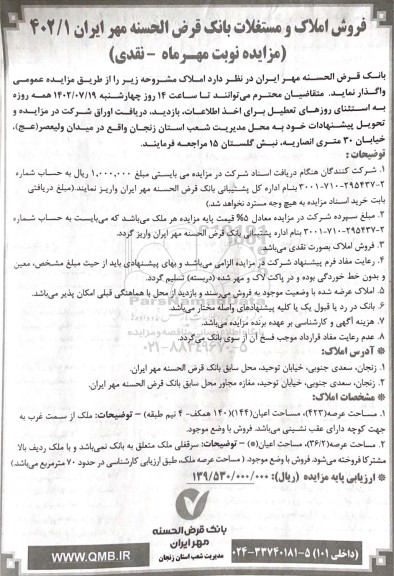 فروش املاک و مستغلات بانک قرض الحسنه مهر ایران ۴۰۲/۱
(مزایده نوبت مهرماه - نقدی)
بانک قرض الحسنه مهر ایران در نظر دارد املاک مشروحه زیر را از طریق مزایده عمومی
واگذار نماید. متقاضیان محترم می‌توانند تا ساعت ۱۴ روز چهارشنبه ۱۴۰۲/۰۷/۱۹ همه روزه
به استثنای روزهای تعطیل برای اخذ اطلاعات، بازدید، دریافت اوراق شرکت در مزایده و
تحویل پیشنهادات خود به محل مدیریت شعب استان زنجان واقع در میدان ولیعصر(عج)،
خیابان ۳۰ متری انصاریه، نبش گلستان ۱۵ مراجعه فرمایند.
توضیحات :
۱. شرکت کنندگان هنگام دریافت اسناد شرکت در مزایده می بایستی مبلغ ۱,۰۰۰,۰۰۰ ریال به حساب شماره
۳۰۰۱-۷۱۰-۲۹۵۴۳۷-۲ بنام اداره کل پشتیبانی بانک قرض الحسنه مهر ایران واریز نمایند.(مبلغ دریافتی
بابت خرید اسناد مزایده به هیچ وجه مسترد نخواهد شد.)
۲. مبلغ سپرده شرکت در مزایده معادل ۵% قیمت پایه مزایده هر ملک می‌باشد که می‌بایست به حساب شماره
۳۰۰۱-۷۱۰-۲۹۵۴۳۷-۲ بنام اداره پشتیبانی بانک قرض الحسنه مهر ایران واریز گردد.
۳. فروش املاک بصورت نقدی می‌باشد.
۴. رعایت مفاد فرم پیشنهاد شرکت در مزایده الزامی می‌باشد و بهای پیشنهادی باید از حیث مبلغ مشخص، معین
و بدون خط خوردگی بوده و در پاکت لاک و مهر شده (دربسته) تسلیم گردد.
۵. املاک عرضه شده با وضعیت موجود به فروش می‌رسند و بازدید از محل با هماهنگی قبلی امکان پذیر می‌باشد.
۶. بانک در رد یا قبول یک یا کلیه پیشنهادهای واصله مختار می‌باشد.
۷. هزینه آگهی و کارشناسی بر عهده برنده مزایده می‌باشد.
۸. عدم رعایت مفاد قرارداد موجب فسخ آن از سوی بانک می‌گردد.
※ آدرس املاک:
۱. زنجان، سعدی جنوبی، خیابان توحید، محل سابق بانک قرض الحسنه مهر ایران.
۲. زنجان، سعدی جنوبی، خیابان توحید، مغازه مجاور محل سابق بانک قرض الحسنه مهر ایران.
※ مشخصات املاک:
۱. مساحت عرصه(۴۲۲)، مساحت اعیان(۱۴۴)(۱۴۰ همکف- ۴ نیم طبقه) – توضیحات: ملک از سمت غرب به
جهت کوچه دارای عقب نشینی می‌باشد. فروش با وضع موجود.
۲. مساحت عرصه(۳۶/۲)، مساحت اعیان(*) – توضیحات: سرقفلی ملک متعلق به بانک نمی‌باشد و با ملک ردیف بالا
مشترکا فروخته می‌شود. فروش با وضع موجود. ( مساحت عرصه ملک، طبق ارزیابی کارشناسی در حدود ۷۰ مترمربع می‌باشد.)
※ ارزیابی پایه مزایده (ریال): ۱۳۹/۵۳۰/۰۰۰/۰۰۰
بانک قرض الحسنه
مهر ایران
مدیریت شعب استان زنجان
WWW.QMB.IR
۰۲۴-۳۳۷۴۰۱۸۱-۵ (داخلی ۱۰۱)
ParsNamadData
۰۲۱-۸۸۳۴۹۶۷۰-۵